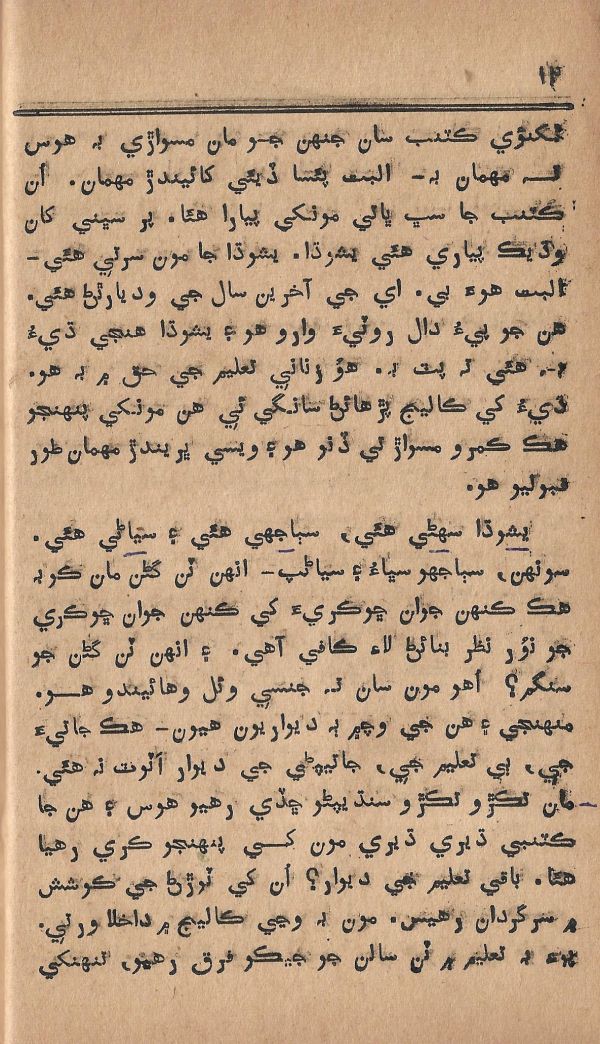 ۱۴
ڪتنب سان جنهن جو مان مسواڙي بہ هوس
تہ مهمان بہ - البت پئسا ڏيئي کائيندڙ مهمان. اُن
ڪتنب جا سڀ ڀاتي مونکي پيارا هئا. پر سڀني کان
وڌيڪ پياري هئي يشوڌا. يشوڌا جا مون سرتي هئي -
البت هوءَ بي. اي جي آخرين سال جي وديارٿڻ هئي.
هن جو پيءُ دال روٽيءَ وارو هو ۽ يشوڌا هنجي ڌيءُ
بہ هئي تہ پٽ بہ. هوُ زناني تعليم جي حق ۾ بہ هو.
ڌيءُ کي ڪاليج پڙهائڻ سانگي ئي هن مونکي پنهنجو
هڪ ڪمرو مسواڙ تي ڏنو هو ۽ ويسي پريندڙ مهمان طور
قبوليو هو.
يشوڌا سهڻي هئي، سٻاجهي هئي ۽ سياڻي هئي.
سونهن، سٻاجهو سڀاءُ ۽ سياڻپ - انهن ٽن گڻن مان ڪو بہ
هڪ ڪنهن جوان ڇوڪريءَ کي ڪنهن جوان ڇوڪري
جو نوُر نظر بنائڻ لاءِ ڪافي آهي. ۽ انهن ٽن گڻن جو
سنگم؟ اُهو مون سان تہ جنسي ويل وهائيندو هو.
منهنجي ۽ هن جي وچ ۾ بہ ديواريون هيون - هڪ جاتيءَ
جي، ٻي تعليم جي، جاتيپڻي جي ديوار اَٽوٽ نہ هئي.
مان ٽڪڙو ٽڪڙو سنڌيپڻو ڇڏي رهيو هوس ۽ هن جا
ڪتنبي ڌيري ڌيري مون کي پنهنجو ڪري رهيا
هئا. باقي تعليم جي ديوار؟ اُن کي ٽوڙڻ جي ڪوشش
۾ سرگردان رهيس. مون بہ وڃي ڪاليج ۾ داخلا ورتي.
پوءِ بہ تعليم ۾ ٽن سالن جو جيڪو فرق رهيو، تنهنکي